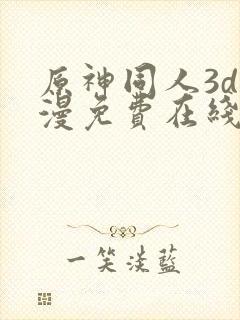 原神同人3d
漫免費在綫
一笑淡藍